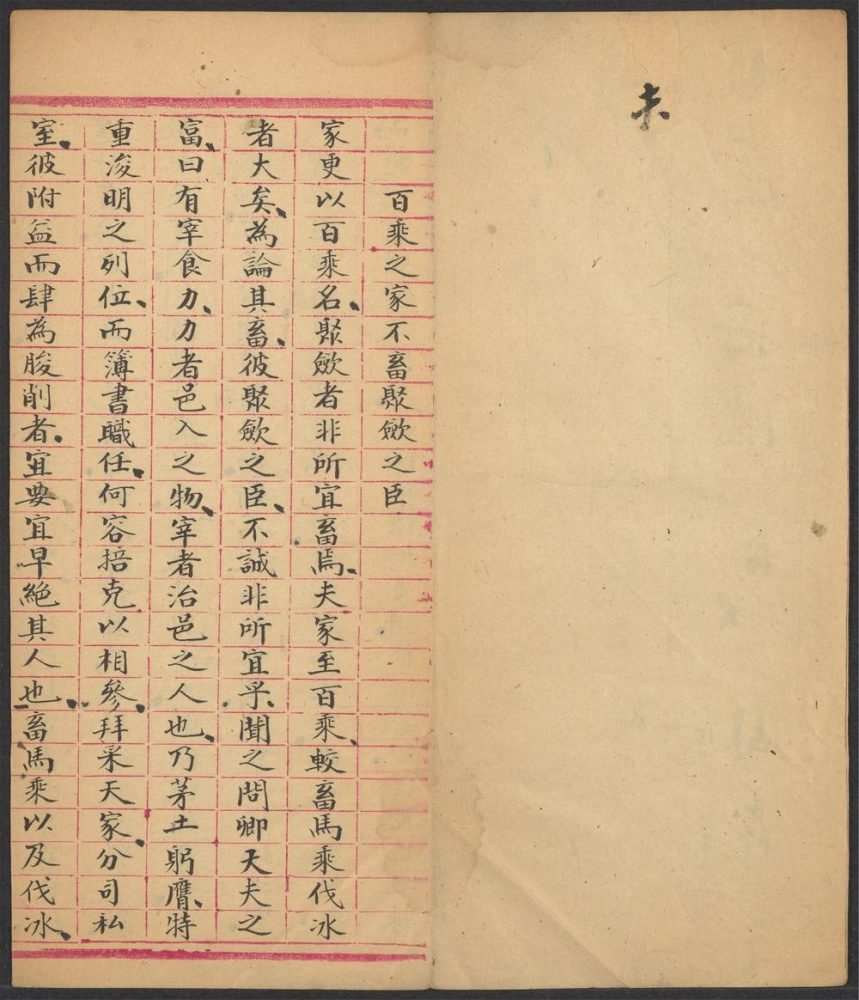 未
百乘之家不畜聚斂之臣
家更以百乘名、聚斂者非所宜畜焉、夫家至百乘、較畜馬乘伐冰
者大矣、為論其畜、彼聚斂之臣、不誠非所宜乎、聞之問卿大夫之
富、曰有宰食力、力者邑入之物、宰者治邑之人也、乃茅土躬膺、特
重浚明之列位、而簿書職任、何容掊克以相參、拜采天家、分司私
室、彼附益而肆為朘削者、宜要宜早絕其人也、畜馬乘以及伐冰、